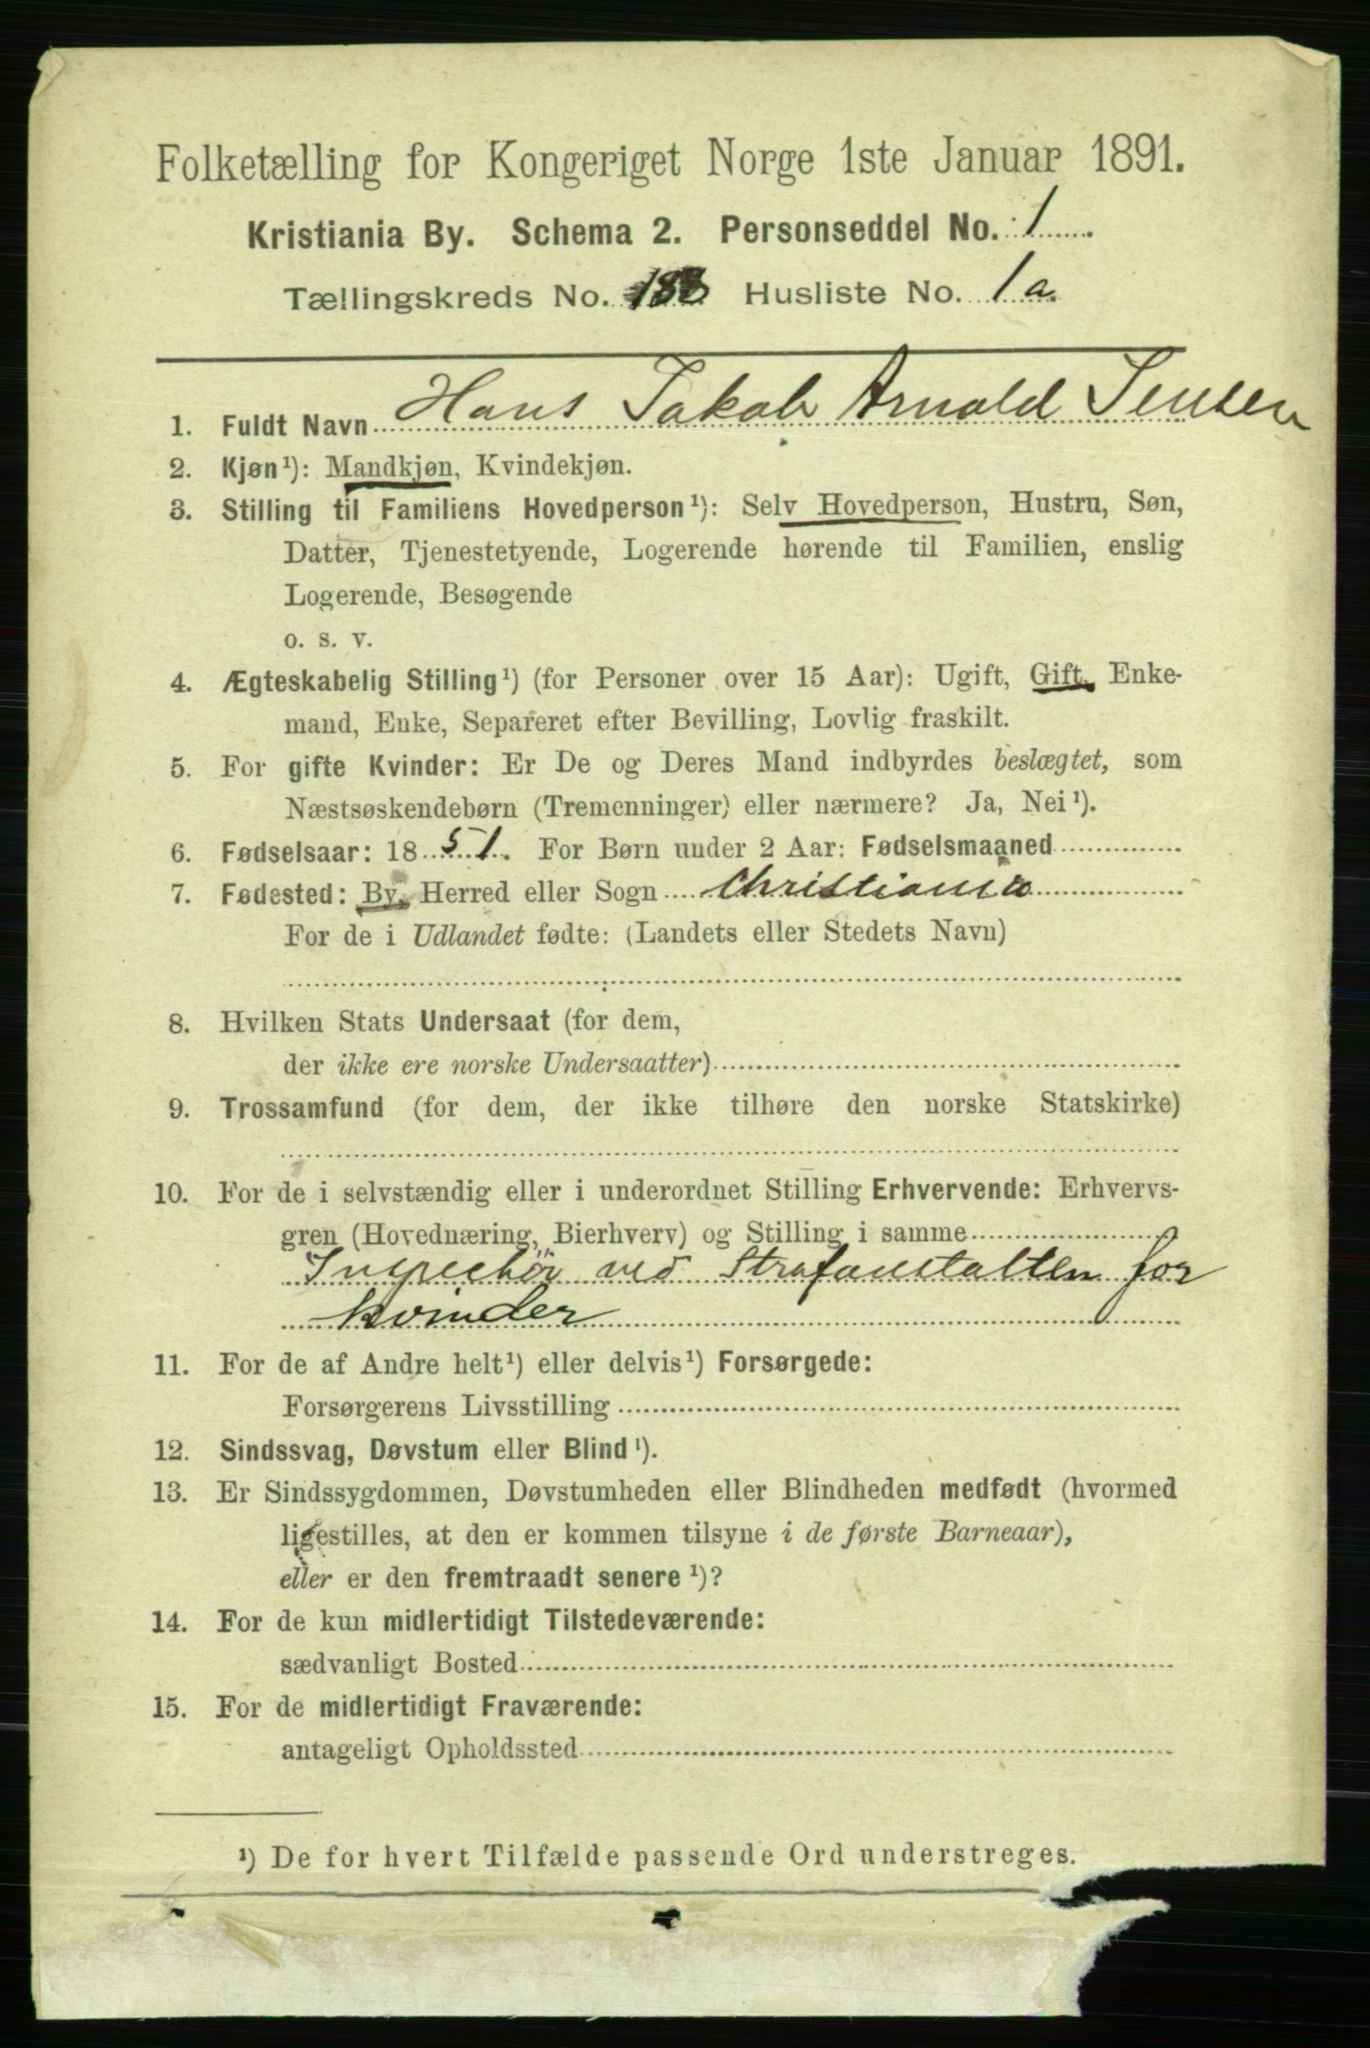 Folketælling for Kongeriget Norge 1ste Januar 1891.
Kristiania By. Schema 2. Personseddel No. 1
Tællingskreds No. 183 Husliste No. 1a.
1. Fuldt Navn Hans Jakob Arnold Jensen
2. Kjøn¹): Mandkjøn, Kvindekjøn.
3. Stilling til Familiens Hovedperson¹): Selv Hovedperson, Hustru, Søn,
Datter, Tjenestetyende, Logerende hørende til Familien, enslig
Logerende, Besøgende
o. s. v.
4. Ægteskabelig Stilling¹) (for Personer over 15 Aar): Ugift, Gift, Enke-
mand, Enke, Separeret efter Bevilling, Lovlig fraskilt.
5. For gifte Kvinder: Er De og Deres Mand indbyrdes beslægtet, som
Næstsøskendebørn (Tremenninger) eller nærmere? Ja, Nei¹).
6. Fødselsaar: 1851. For Børn under 2 Aar: Fødselsmaaned
7. Fødested: By, Herred eller Sogn Christiania
For de i Udlandet fødte: (Landets eller Stedets Navn)
8. Hvilken Stats Undersaat (for dem,
der ikke ere norske Undersaatter)
9. Trossamfund (for dem, der ikke tilhøre den norske Statskirke)
10. For de i selvstændig eller i underordnet Stilling Erhvervende: Erhvervs-
gren (Hovednæring, Bierhverv) og Stilling i samme
Inspectør ved Strafanstalten for
kvinder
11. For de af Andre helt¹) eller delvis¹) Forsørgede:
Forsørgerens Livsstilling
12. Sindssvag, Døvstum eller Blind¹).
13. Er Sindssygdommen, Døvstumheden eller Blindheden medfødt (hvormed
ligestilles, at den er kommen tilsyne i de første Barneaar),
eller er den fremtraadt senere¹)?
14. For de kun midlertidigt Tilstedeværende:
sædvanligt Bosted
15. For de midlertidigt Fraværende:
antageligt Opholdssted
¹) De for hvert Tilfælde passende Ord understreges.